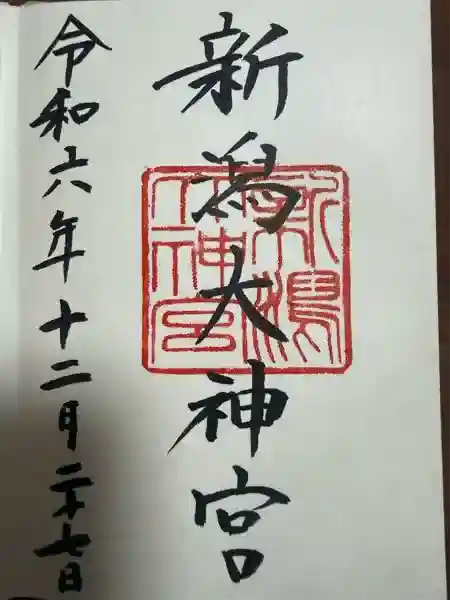 新潟大神宮
令和六年十二月二十七日
新潟
大神宮